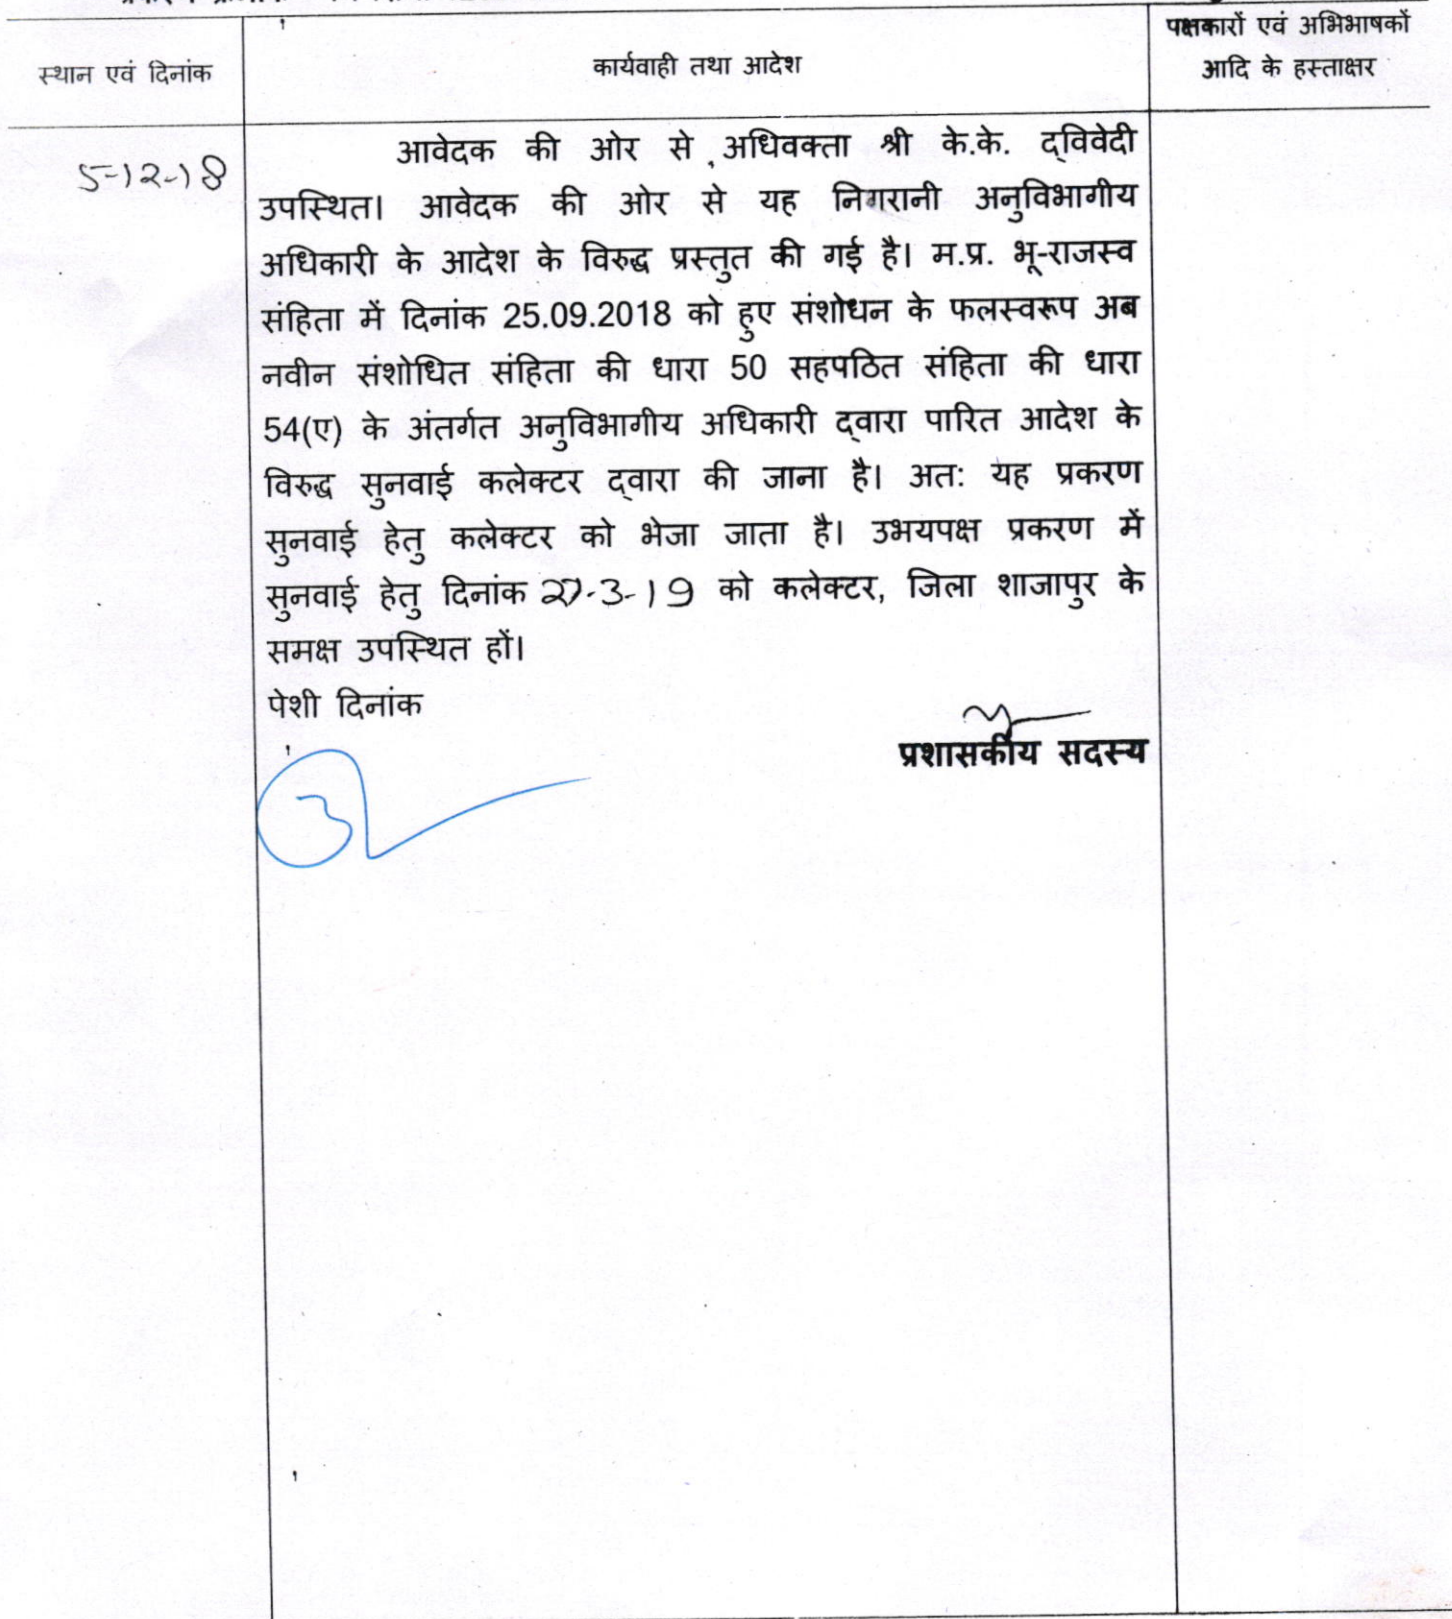 पक्षकारों एवं अभिभाषकों
स्थान एवं दिनांक
कार्यवाही तथा आदेश
आदि के हस्ताक्षर
5-12-18
आवेदक की ओर से अधिवक्ता श्री के.के. द्विवेदी
उपस्थित। आवेदक की ओर से यह निगरानी अनुविभागीय
अधिकारी के आदेश के विरुद्ध प्रस्तुत की गई है। म.प्र. भू-राजस्व
संहिता में दिनांक 25.09.2018 को हुए संशोधन के फलस्वरूप अब
नवीन संशोधित संहिता की धारा 50 सहपठित संहिता की धारा
54(ए) के अंतर्गत अनुविभागीय अधिकारी द्वारा पारित आदेश के
विरुद्ध सुनवाई कलेक्टर द्वारा की जाना है। अत: यह प्रकरण
सुनवाई हेतु कलेक्टर को भेजा जाता है। उभयपक्ष प्रकरण में
सुनवाई हेतु दिनांक 27-3-19 को कलेक्टर, जिला शाजापुर के
समक्ष उपस्थित हों।
पेशी दिनांक
प्रशासकीय सदस्य